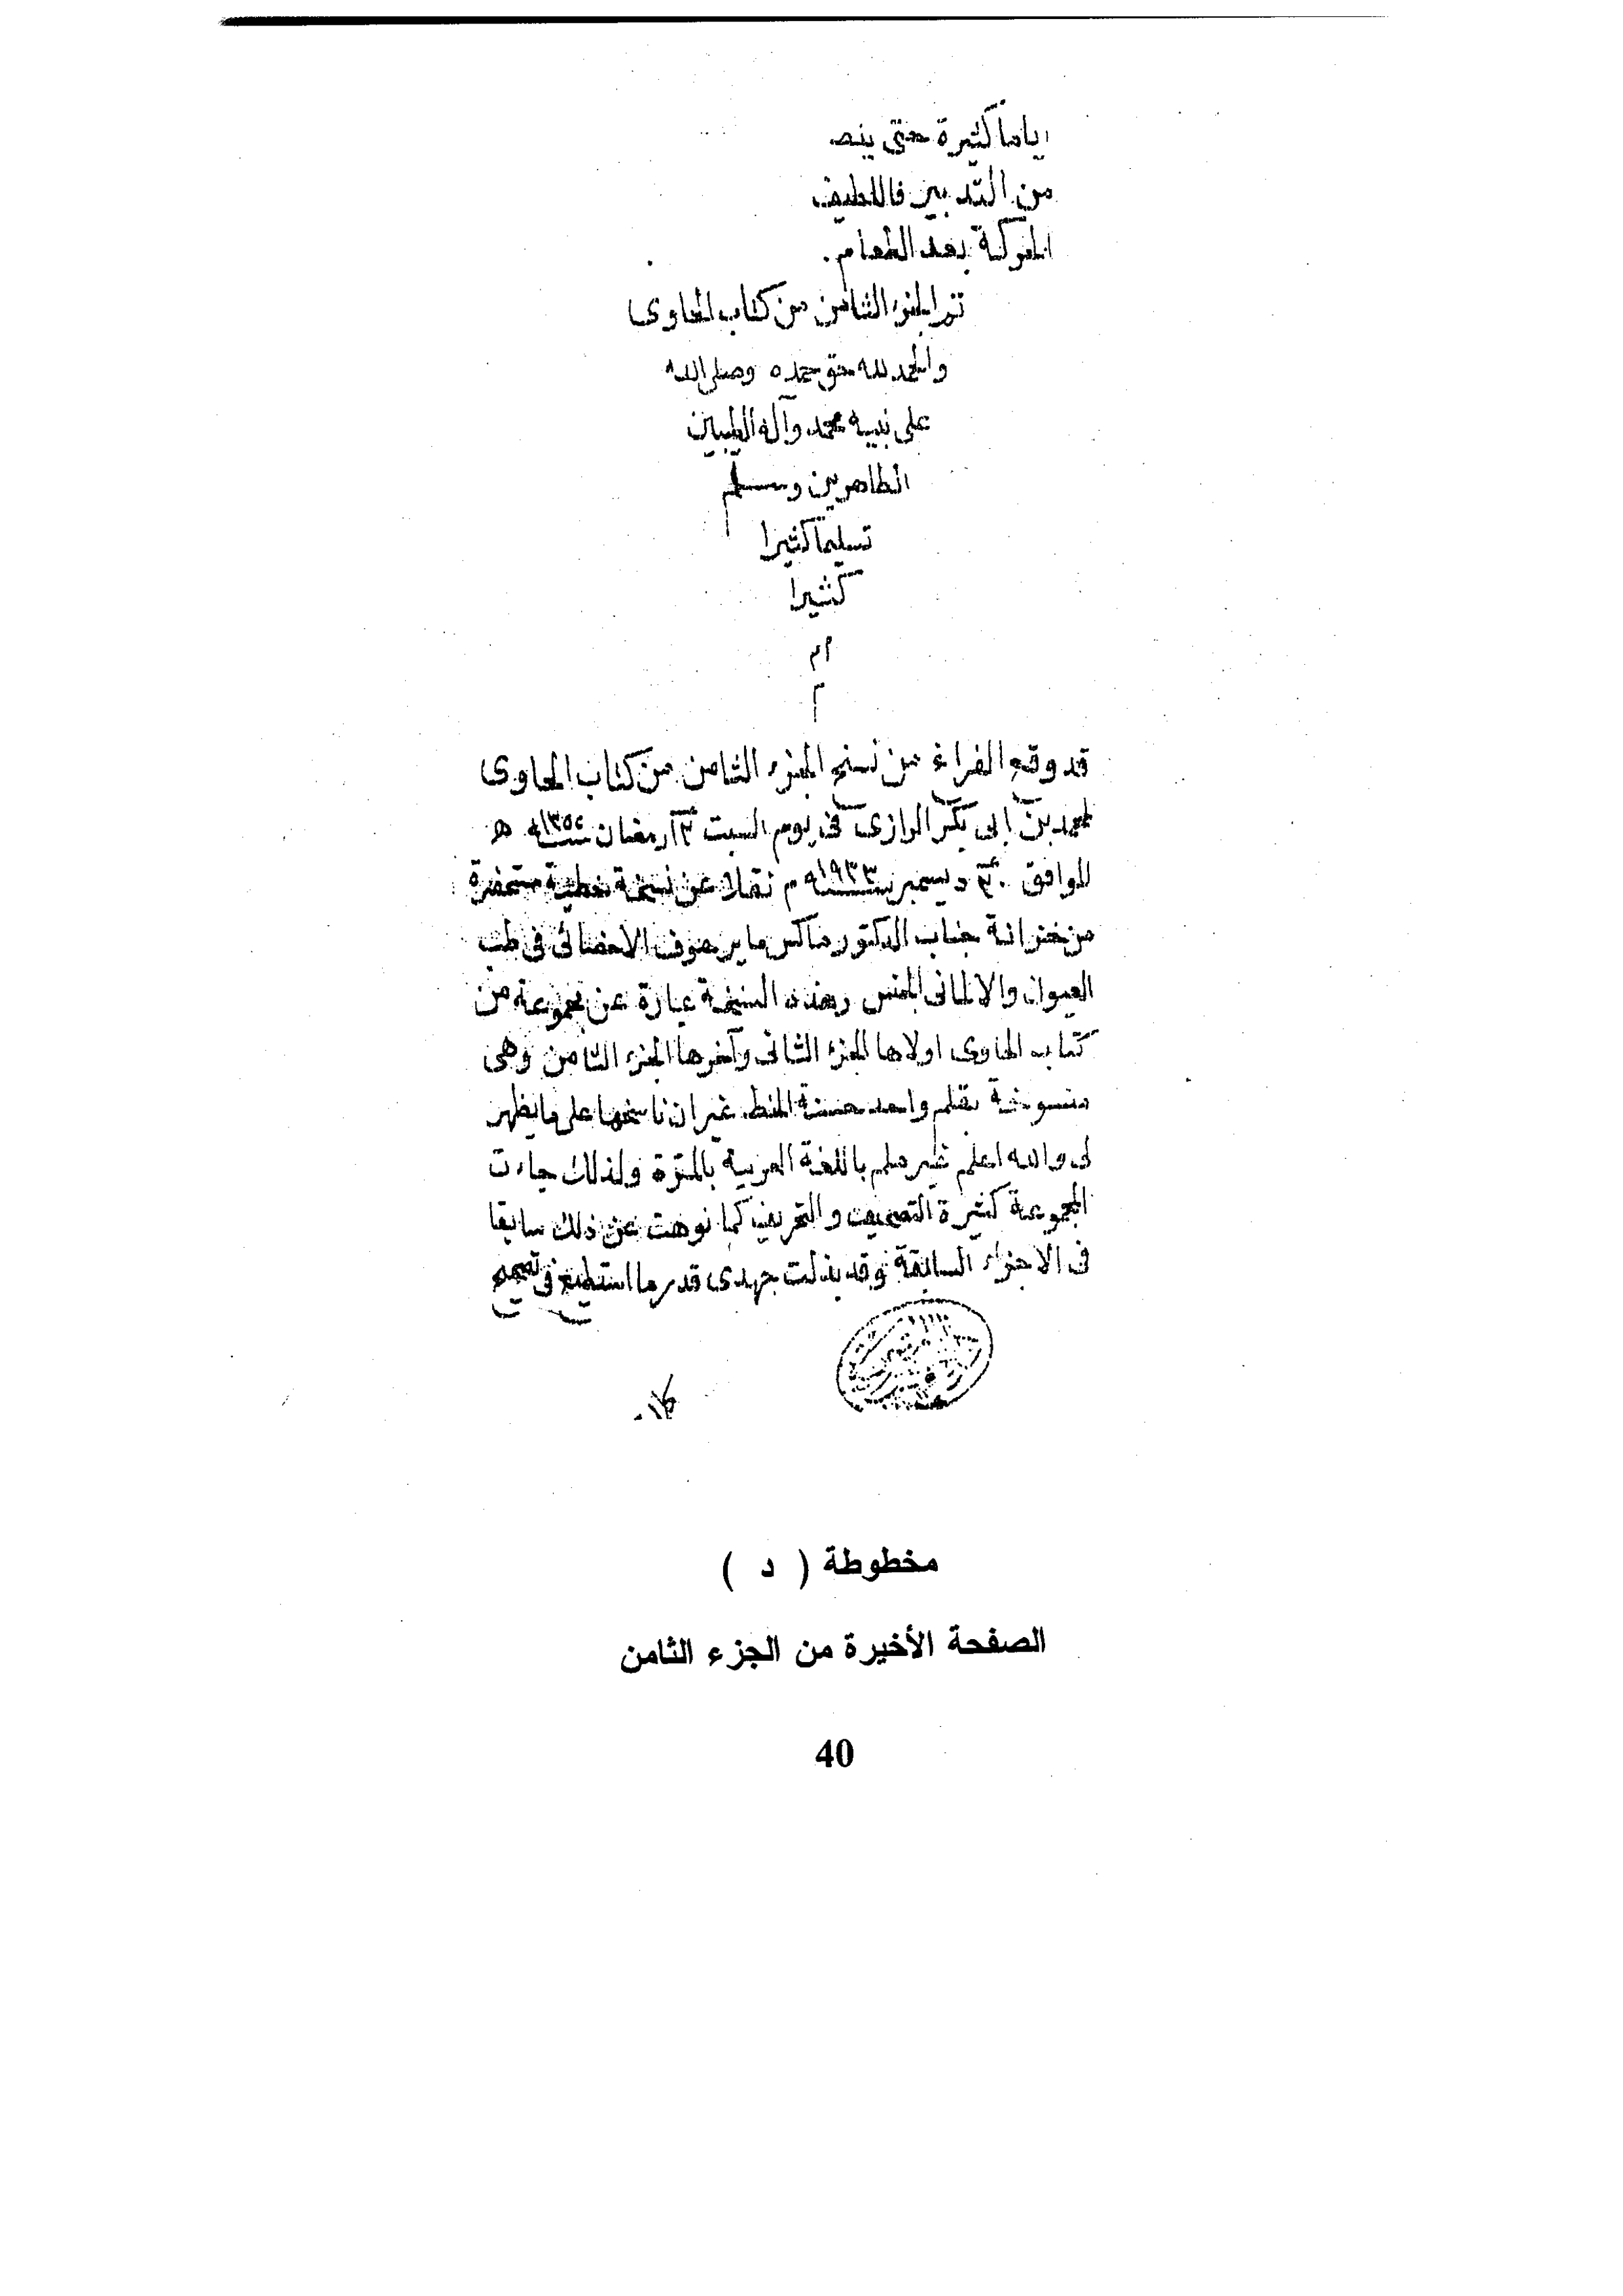 اياما كثيرة حتى ينص
من التدبير فاللطيف
الحركة بعد الطعام.
تم الجزء الثامن من كتاب الحاوى
والحمد لله حق حمده وصلى الله
على نبيه محمد وآله الطيبين
الطاهرين وسلم
تسليما كثيرا
كثيرا
م م
م
قد وقع الفراغ من نسخ الجزء الثامن من كتاب الحاوى
لمحمد بن ابى بكر الرازى فى يوم السبت ١٣ رمضان سنة ١٣٥٢ هـ
الموافق ٣٠ ديسمبر سنة ١٩٣٣ م نقلا عن نسخة خطية مستحضرة
من خزانة جناب الدكتور ماكس مايرهوف الاخصائى فى طب
العيون والالمانى الجنس وهذه النسخة عبارة عن مجموعة من
كتاب الحاوى اولاها الجزء الثانى وآخرها الجزء الثامن وهى
منسوخة بقلم واحد حسنة الخط غير ان ناسخها على ما يظهر
لى والله اعلم غير ملم باللغة العربية بالمرة ولذلك جاءت
المجموعة كثيرة التصحيف والتحريف كما نوهت عن ذلك سابقا
فى الاجزاء السابقة وقد بذلت جهدى قدر ما استطيع فى تصحيح
مخطوطة ( د )
الصفحة الأخيرة من الجزء الثامن
40